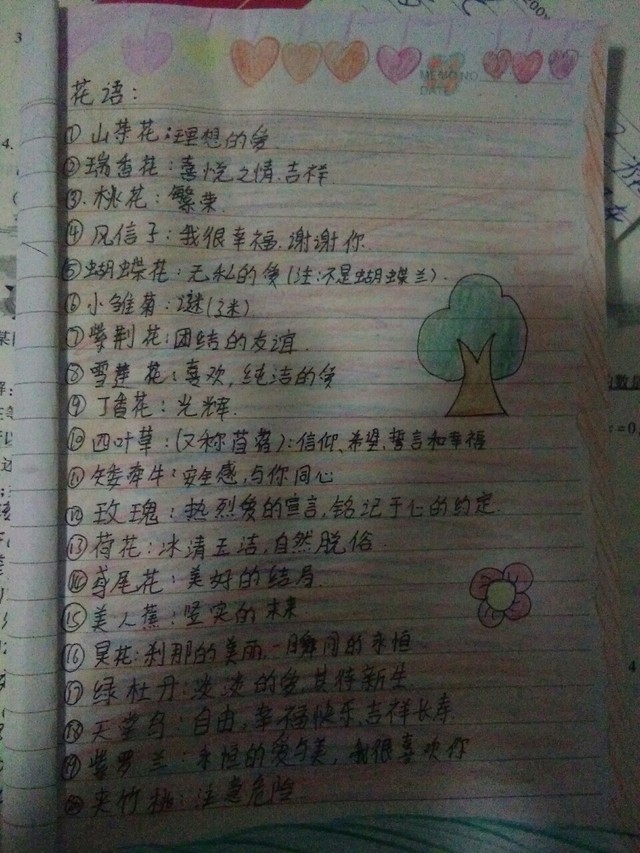 MEMO NO.
DATE
花语：
① 山茶花：理想的爱
② 瑞香花：喜悦之情.吉祥
③ 桃花：繁荣
④ 风信子：我很幸福.谢谢你
⑤ 蝴蝶花：无私的爱(注:不是蝴蝶兰).
⑥ 小雏菊：谜(迷)
⑦ 紫荆花：团结的友谊.
⑧ 雪莲花：喜欢,纯洁的爱
⑨ 丁香花：光辉.
⑩ 四叶草：(又称苜蓿)：信仰、希望、誓言和幸福
⑪ 矮牵牛：安全感,与你同心
⑫ 玫瑰：热烈爱的宣言,铭记于心的约定.
⑬ 荷花：冰清玉洁,自然脱俗
⑭ 鸢尾花：美好的结局
⑮ 美人蕉：坚实的未来
⑯ 昙花:刹那的美丽,一瞬间的永恒
⑰ 绿杜丹：淡淡的爱,期待新生
⑱ 天堂鸟：自由,幸福快乐、吉祥长寿
⑲ 紫罗兰：永恒的爱与美，我很喜欢你
⑳ 夹竹桃：注意危险